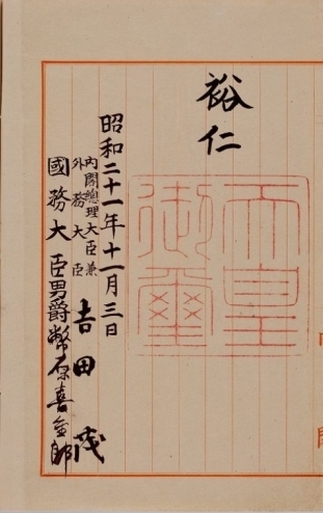 裕仁
天皇
御璽
昭和二十一年十一月三日
内閣總理大臣兼
外務大臣
吉田茂
國務大臣男爵幣原喜重郎